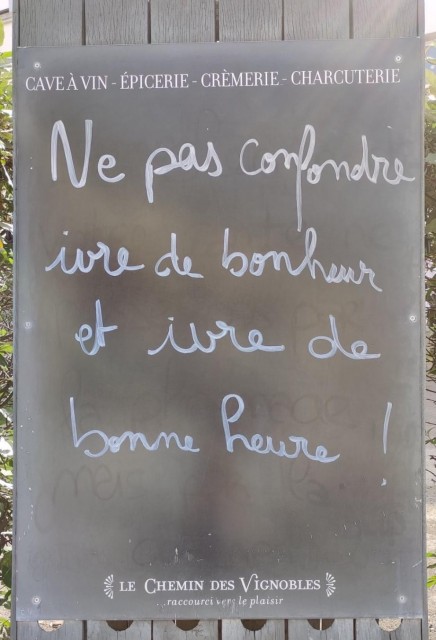 CAVE À VIN - ÉPICERIE - CRÈMERIE - CHARCUTERIE
Ne pas confondre
ivre de bonheur
et ivre de
bonne heure !
LE CHEMIN DES VIGNOBLES
...raccourci vers le plaisir